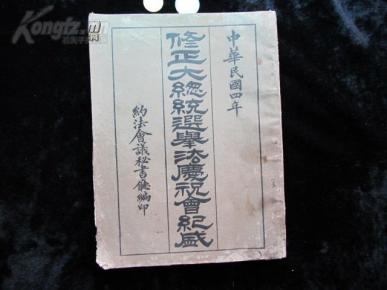 中華民國四年
修正大總統選舉法慶祝會紀盛
約法會議秘書廳編印
Kongfz.com